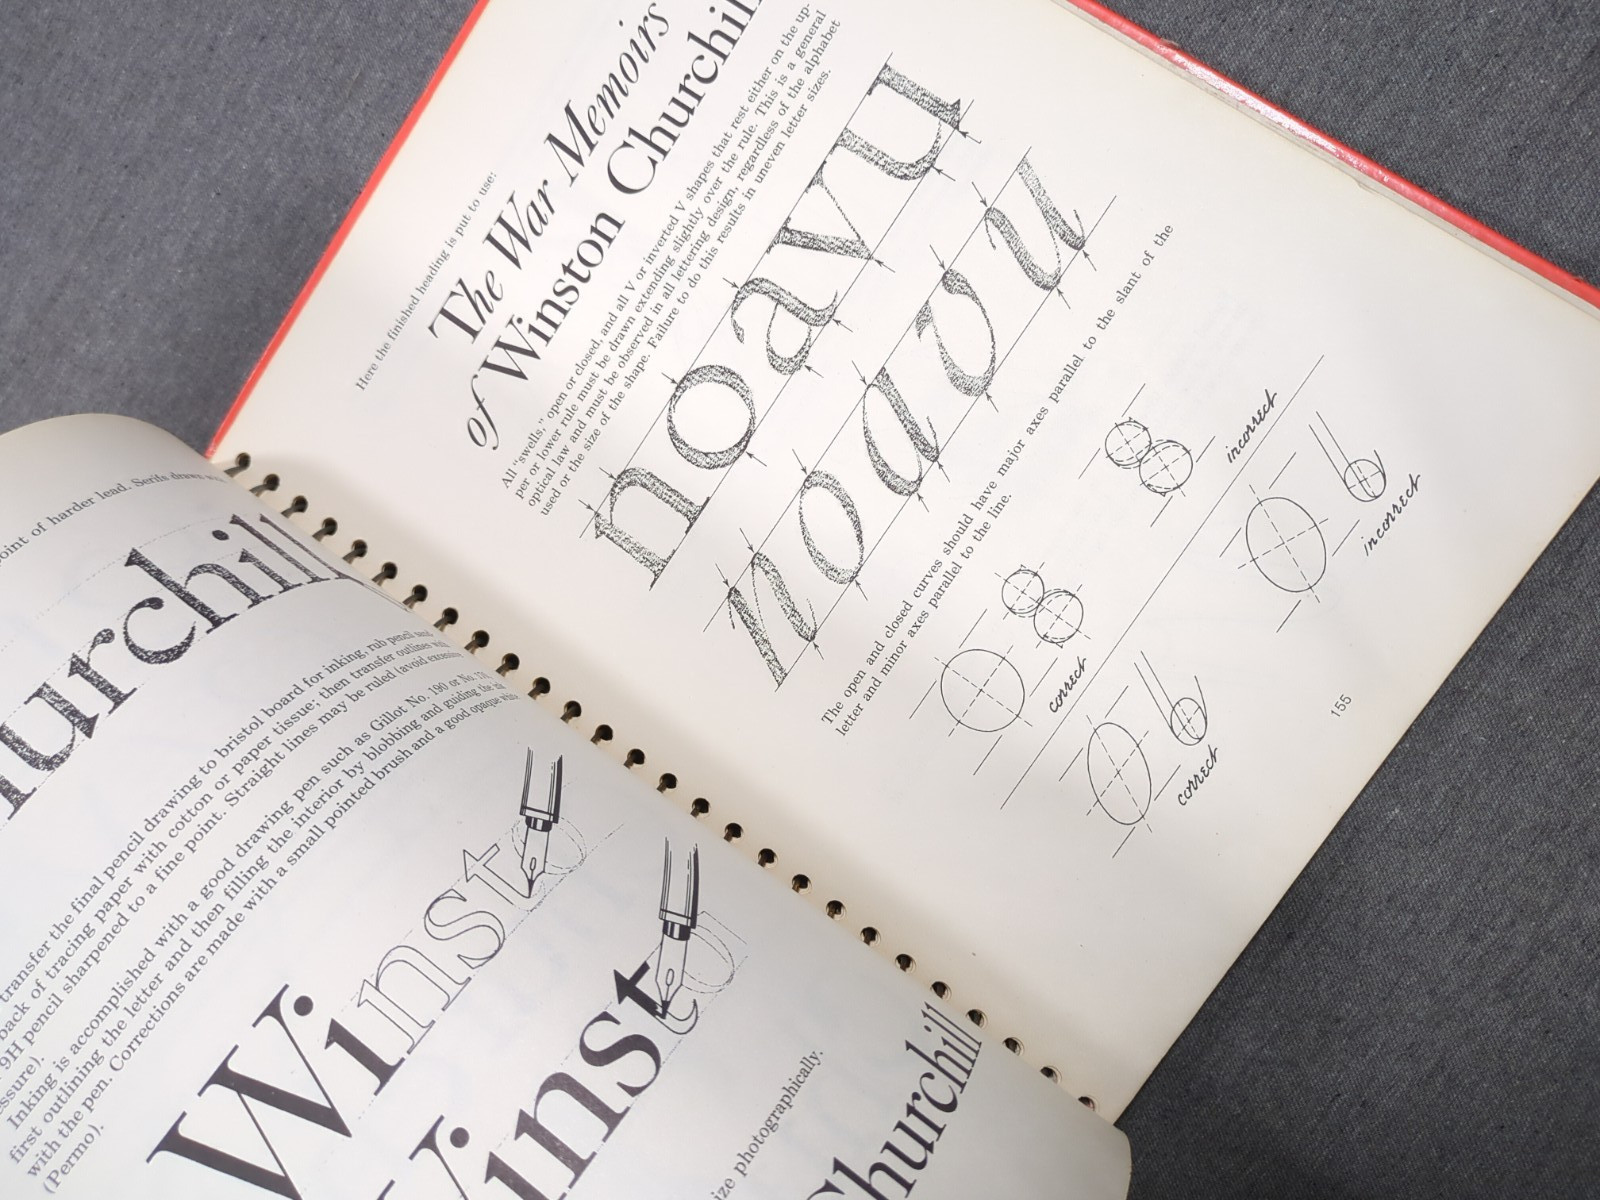 oint of harder lead. Serifs drawn
hurchill
transfer the final pencil drawing to bristol board for inking, rub pencil
back of tracing paper with cotton or paper tissue; then transfer outlines with
9H pencil sharpened to a fine point. Straight lines may be ruled (avoid excessive
essure).
Inking is accomplished with a good drawing pen such as Gillot No. 190 or No.
first outlining the letter and then filling the interior by blobbing and guiding the ink
with the pen. Corrections are made with a small pointed brush and a good opaque white
(Permo).
Winst
Winst
ize photographically.
Churchill
Here the finished heading is put to use:
The War Memoirs
of Winston Churchill
All "swells," open or closed, and all V or inverted V shapes that rest either on the up-
per or lower rule must be drawn extending slightly over the rule. This is a general
optical law and must be observed in all lettering design, regardless of the alphabet
used or the size of the shape. Failure to do this results in uneven letter sizes.
noavu
noavu
The open and closed curves should have major axes parallel to the slant of the
letter and minor axes parallel to the line.
O 8
correct
8
incorrect
O b
correct
O b
incorrect
155